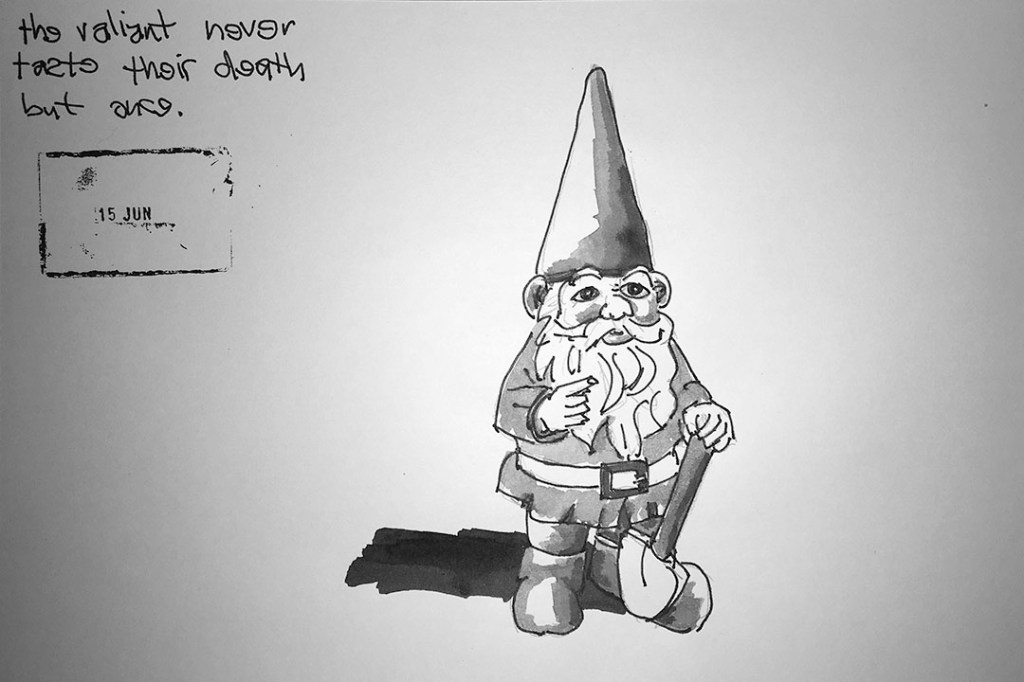 the valiant never
taste their death
but once.
15 JUN